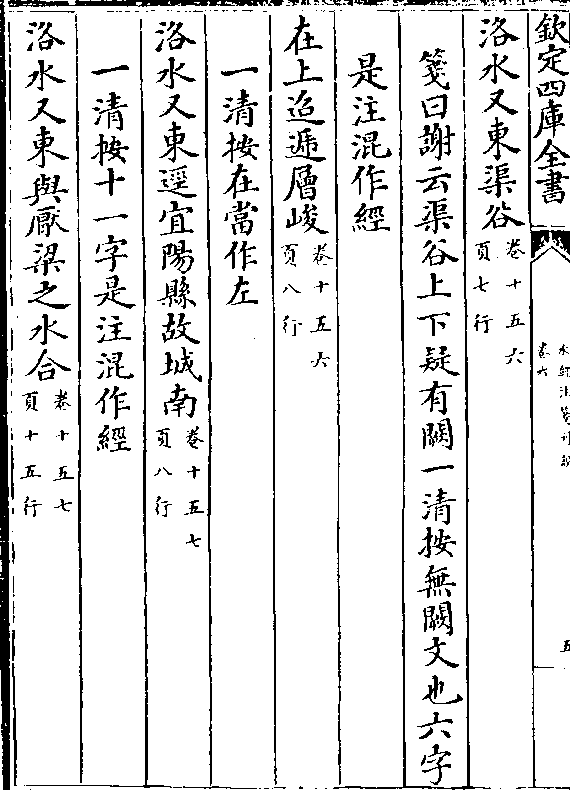 欽定四庫全書
水經注箋刊誤
卷六
五
洛水又東渠谷卷十五六頁七行
箋曰謝云渠谷上下疑有闕一清按無闕文也六字
是注混作經
在上迢遞層峻卷十五六頁八行
一清按在當作左
洛水又東逕宜陽縣故城南卷十五七頁八行
一清按十一字是注混作經
洛水又東與厭梁之水合卷十五七頁十五行